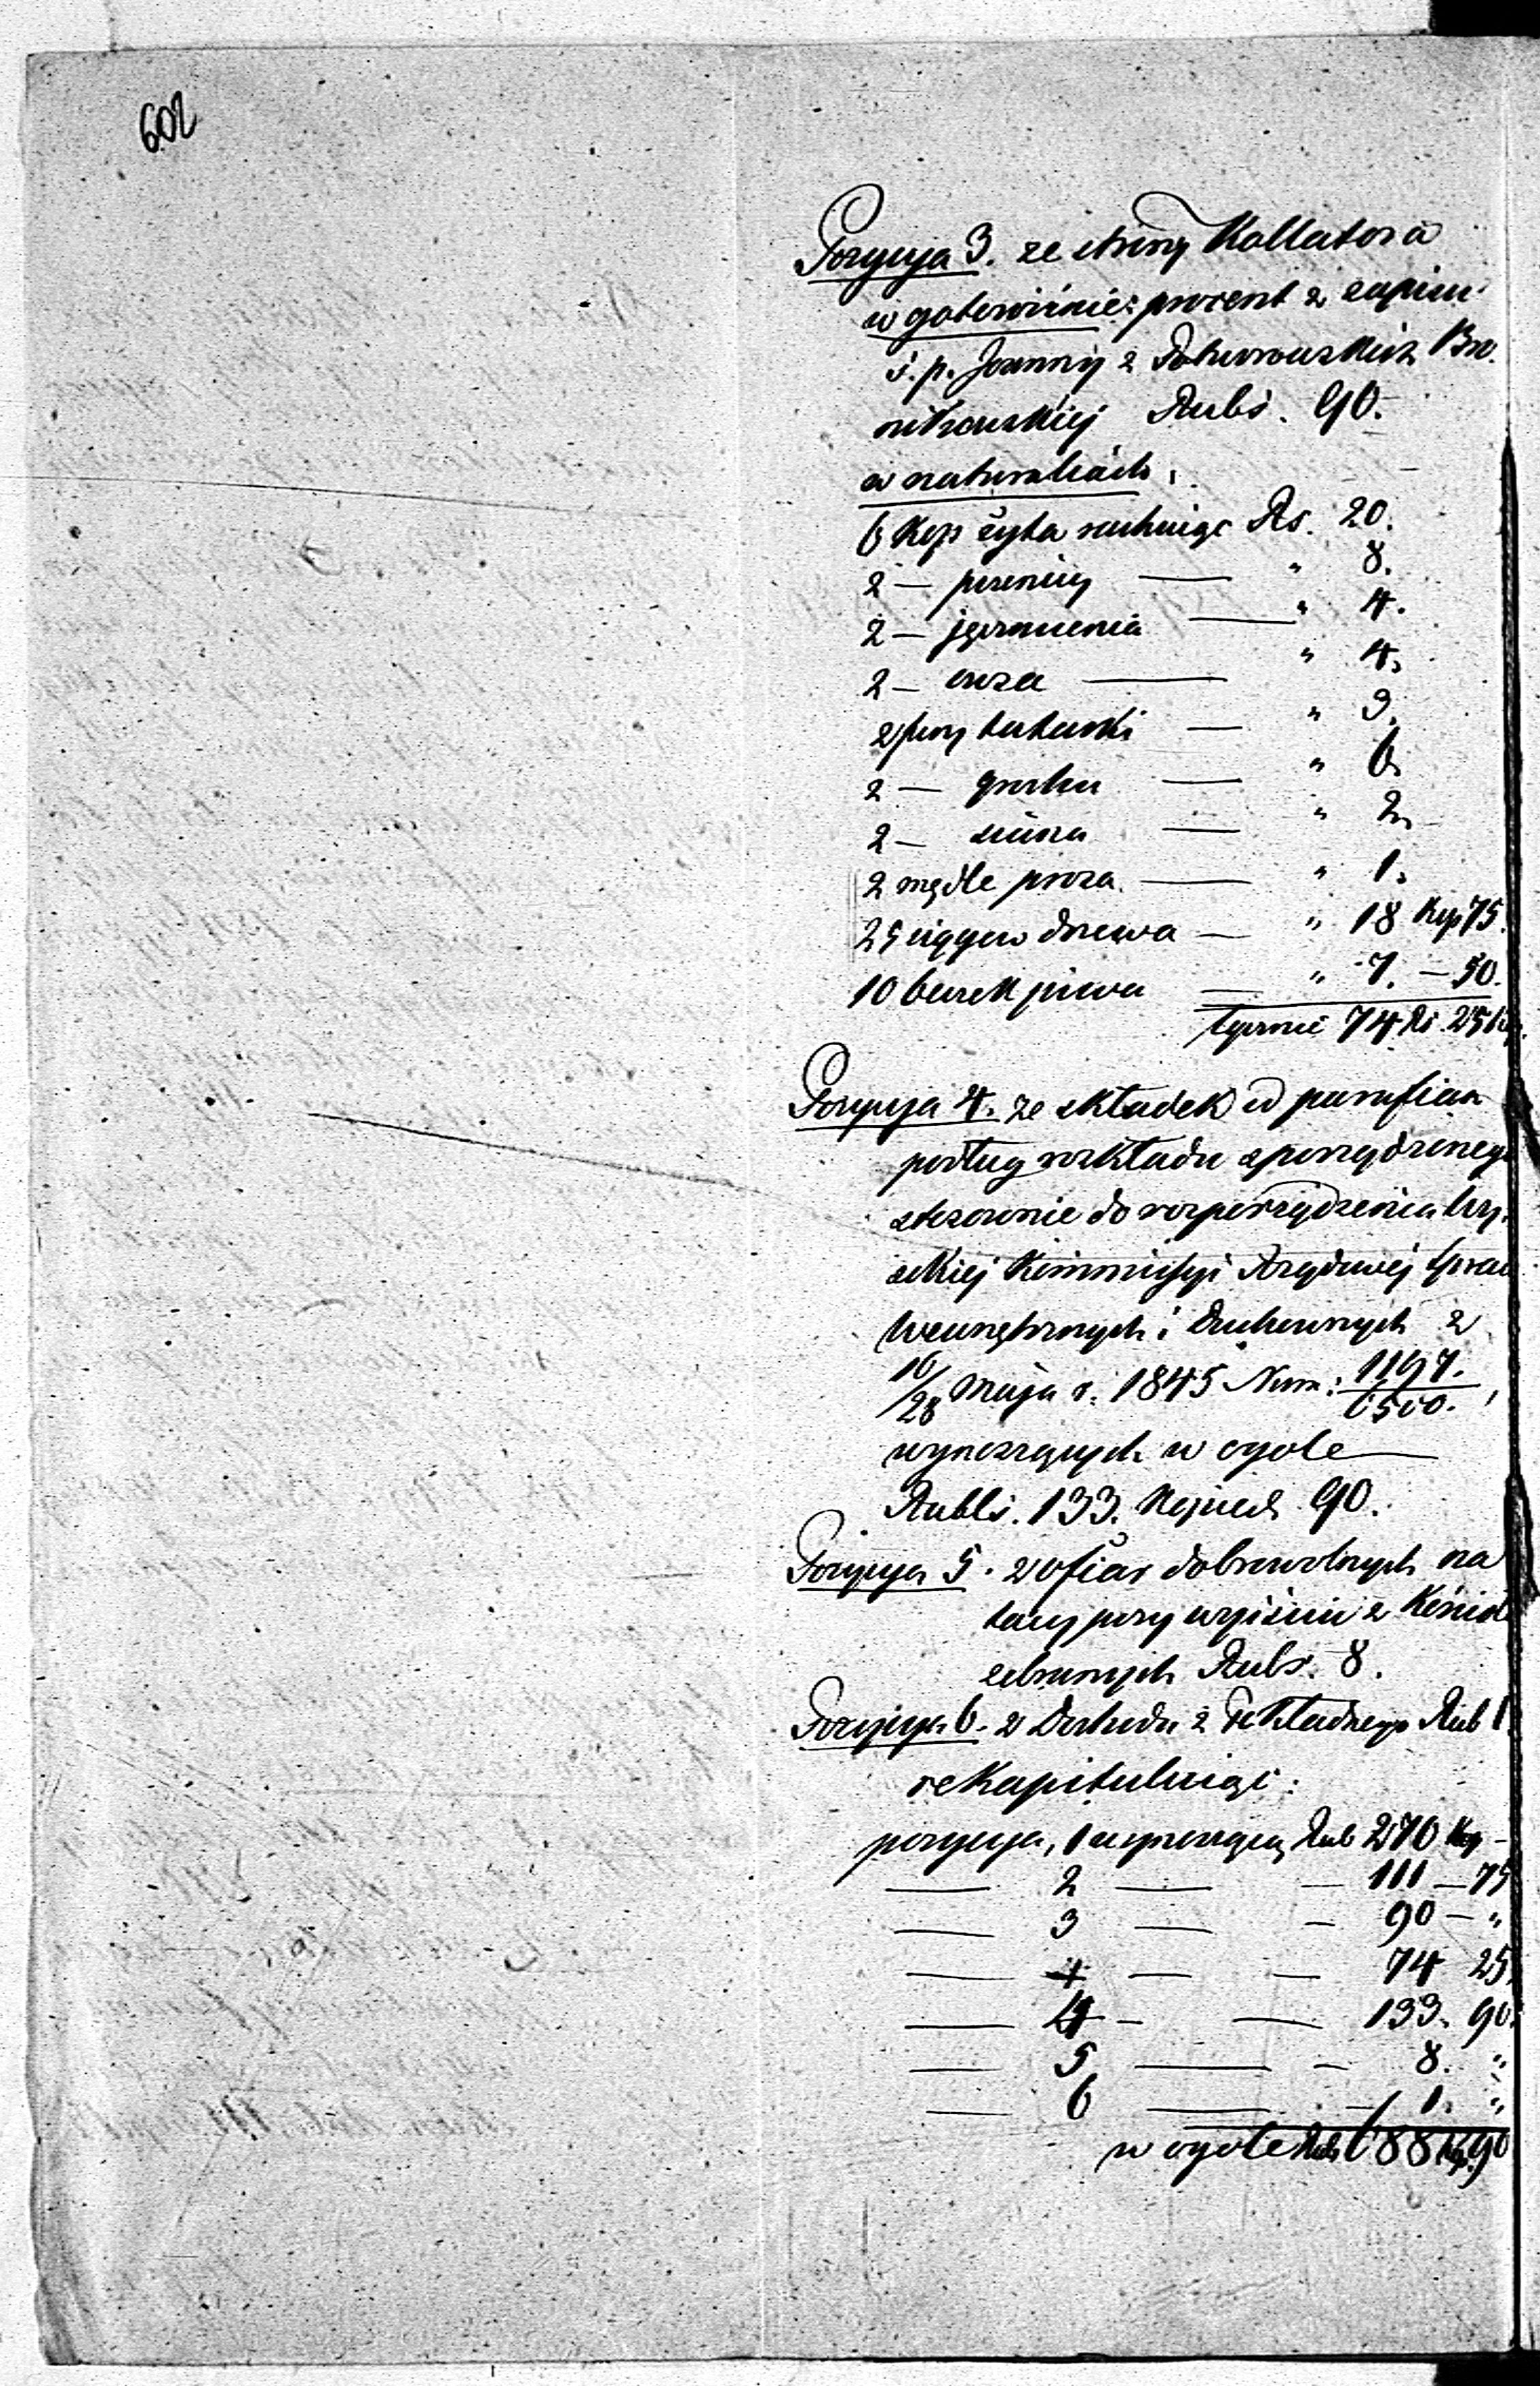 602
Pozycya 3. ze strony Kollatora
w gotowiźnie: procent z zapisu
ś. p. Joanny z Potworowskich Bro
nikowskiéj Rubś. 90.
w naturaliach,
6 kop żyta rachuiąc Rs. 20.
2 — pszenicy — " 8.
2 — jęczmienia — " 4.
2 — owsa — " 4.
2 fury tatarki — " 3.
2 — grochu — " 6.
2 — siana — " 2.
2 mędle prosa — " 1.
25 ciągów drzewa — " 18 kop 75.
10 beczek piwa — " 7. — 50.
łącznie 74 Rś. 25 k
Pozycya 4. ze składek od parafian
podług rozkładu sporządzonego
stosownie do rozporządzenia Wy
sokiej Kommissyi Rządowéj Spraw
Wewnętrznych i Duchownych z
16/28 Maja r. 1845 Num: 1197./6500.,
wynoszących w ogole —
Rublś. 133. Kopiiek 90.
Pozycya 5. z ofiar dobrowolnych na
tacy przy wyiściu z Kościoł
zebranych Rubś. 8.
Pozycya 6. z Dochodu z Pokładnego Rub 1.
rekapituluiąc:
pozycya, 1 wynosząca Rub 270 kop —
— 2 — — 111 — 75
— 3 — — 90 — "
— 4 — — 74 25.
— 4 — — 133. 90.
— 5 — — 8. "
— 6 — — 1. "
w ogole Rub 688 Kop. 90